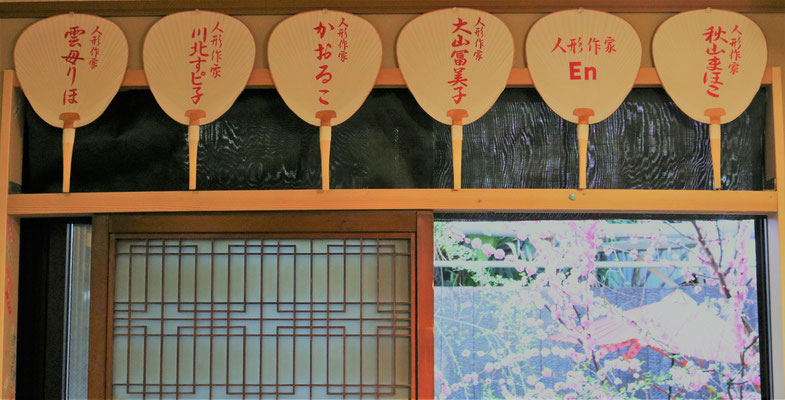 人形作家
雲母りほ
人形作家
川北すピ子
人形作家
かおるこ
人形作家
大山冨美子
人形作家
En
人形作家
秋山まほこ